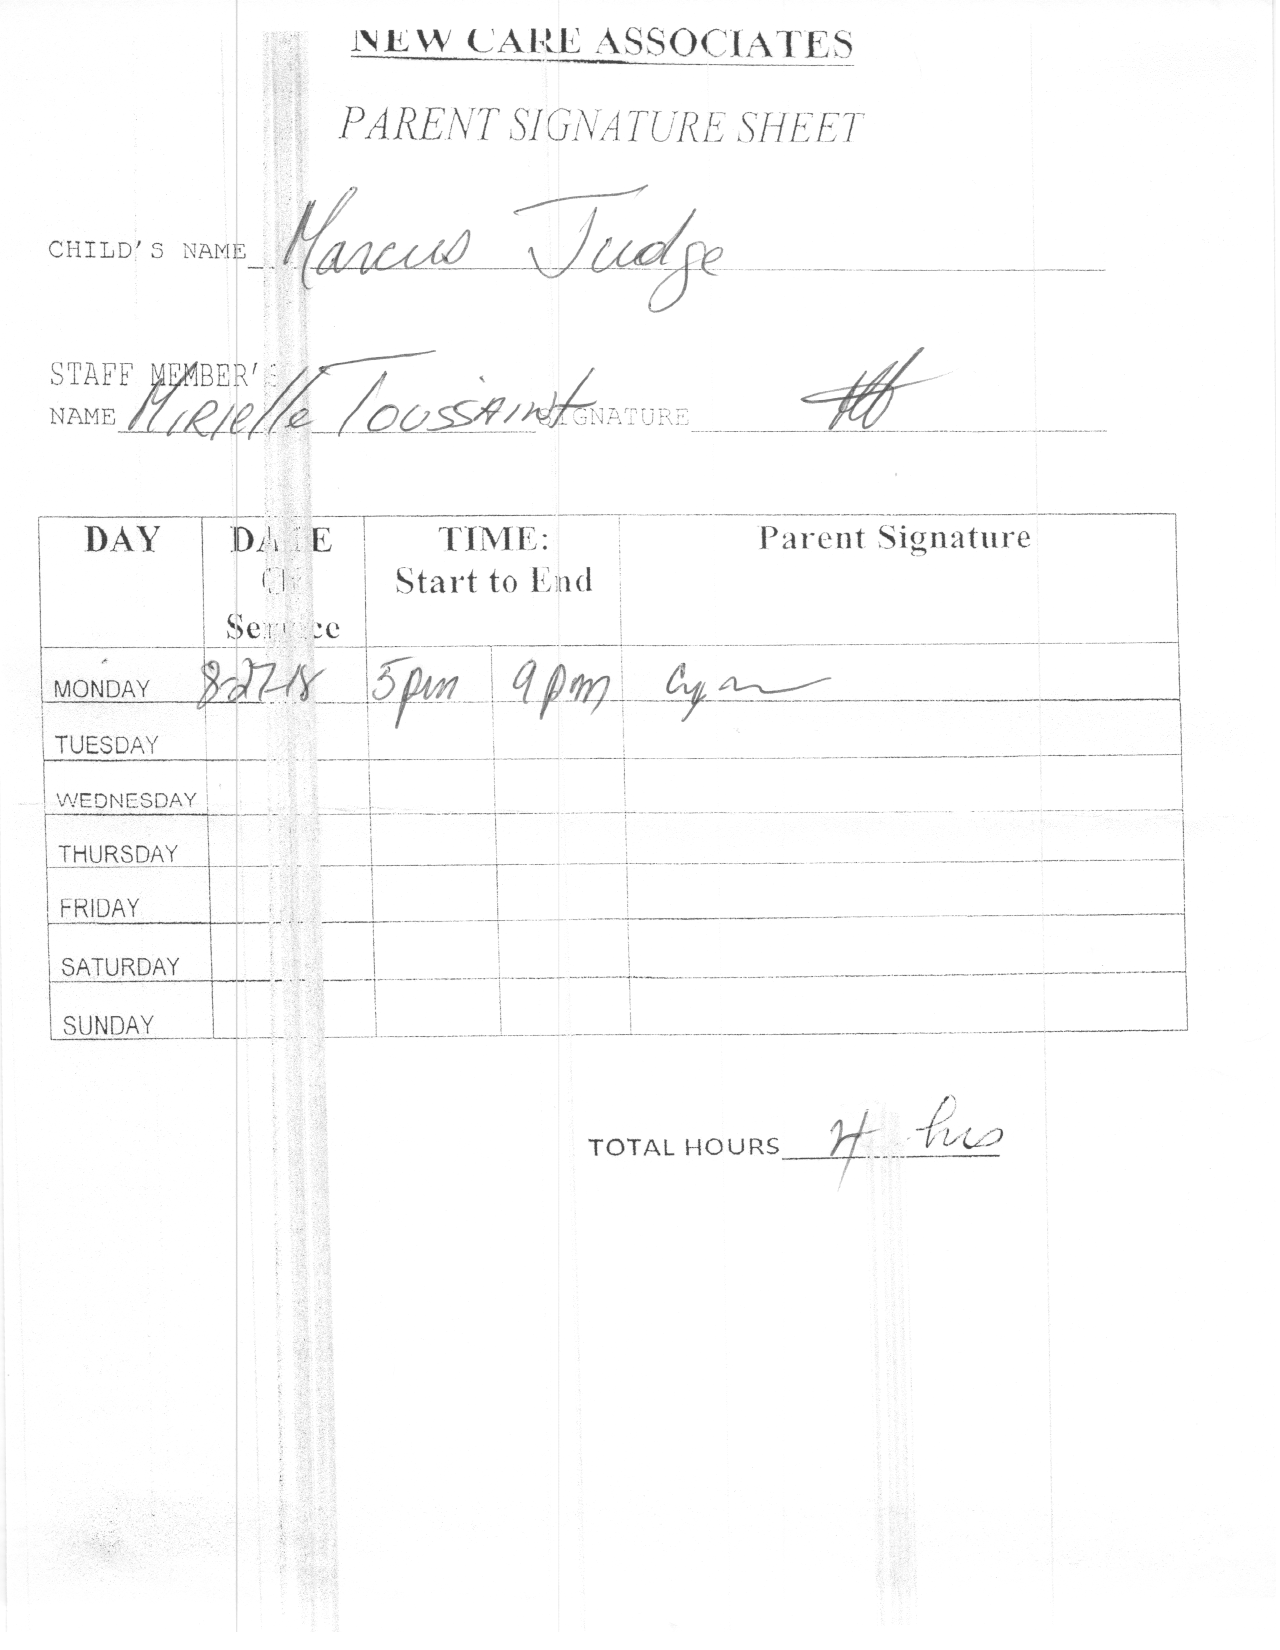 NEW CARE ASSOCIATES
PARENT SIGNATURE SHEET
CHILD'S NAME Marcus Judge
STAFF MEMBER'S
NAME Mirielle Toussaint SIGNATURE
DAY DATE TIME: Parent Signature
OF Start to End
Service
MONDAY 8-27-18 5pm 9pm
TUESDAY
WEDNESDAY
THURSDAY
FRIDAY
SATURDAY
SUNDAY
TOTAL HOURS 4 hrs